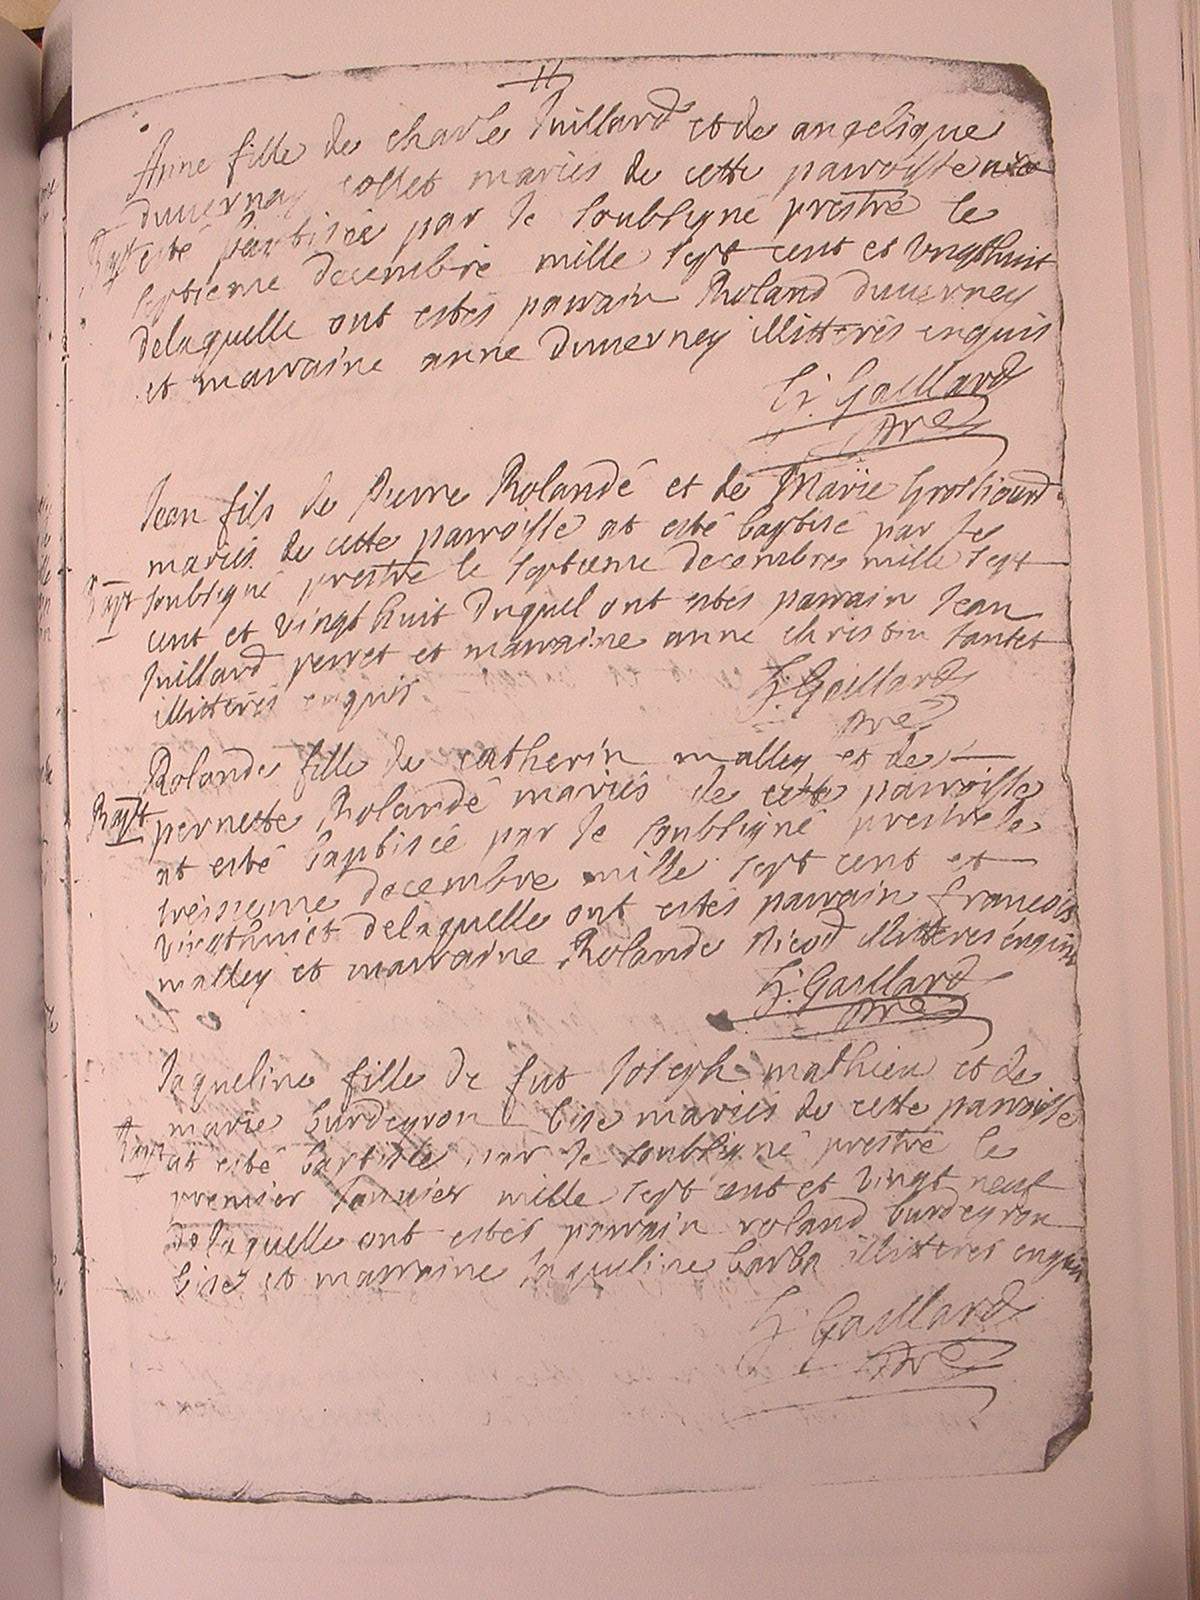 11
Anne fille de charle Vuillard et de angelique
duuerney collet mariés de cette parroisse at
Bapt esté baptisée par le soubsigné prestre le
septieme decembre mille sept cent et vingthuit
delaquelle ont estés parrain Roland duuerney
et marraine anne Duuerney illitterés enquis
Gaillard
pre
Jean fils de Pierre Rolandé et de Marie
mariés de cette parroisse at esté baptisé par le
Bapt soubsigné prestre le septieme decembre mille sept
cent et vingt huit duquel ont estés parrain Jean
Vuillard perret et marraine anne christin tantet
illitterés enquis
Gaillard
pre
Rolande fille de catherin malley et de
Bapt pernette Rolandé mariés de cette parroisse
at esté baptisée par le soubsigné prestre le
tresieme decembre mille sept cent et
vingthuict delaquelle ont estés parrain francois
malley et marraine Rolande Nicod illitterés enquis
Gaillard
pre
Jaqueline fille de fut Joseph mathieu et de
marie burdeyron bise mariés de cette parroisse
Bapt at esté baptisée par le soubsigné prestre le
premier Januier mille sept cent et vingt neuf
de laquelle ont estés parrain roland burdeyron
bise et marraine Jaqueline barba illitterés enquis
Gaillard
pre